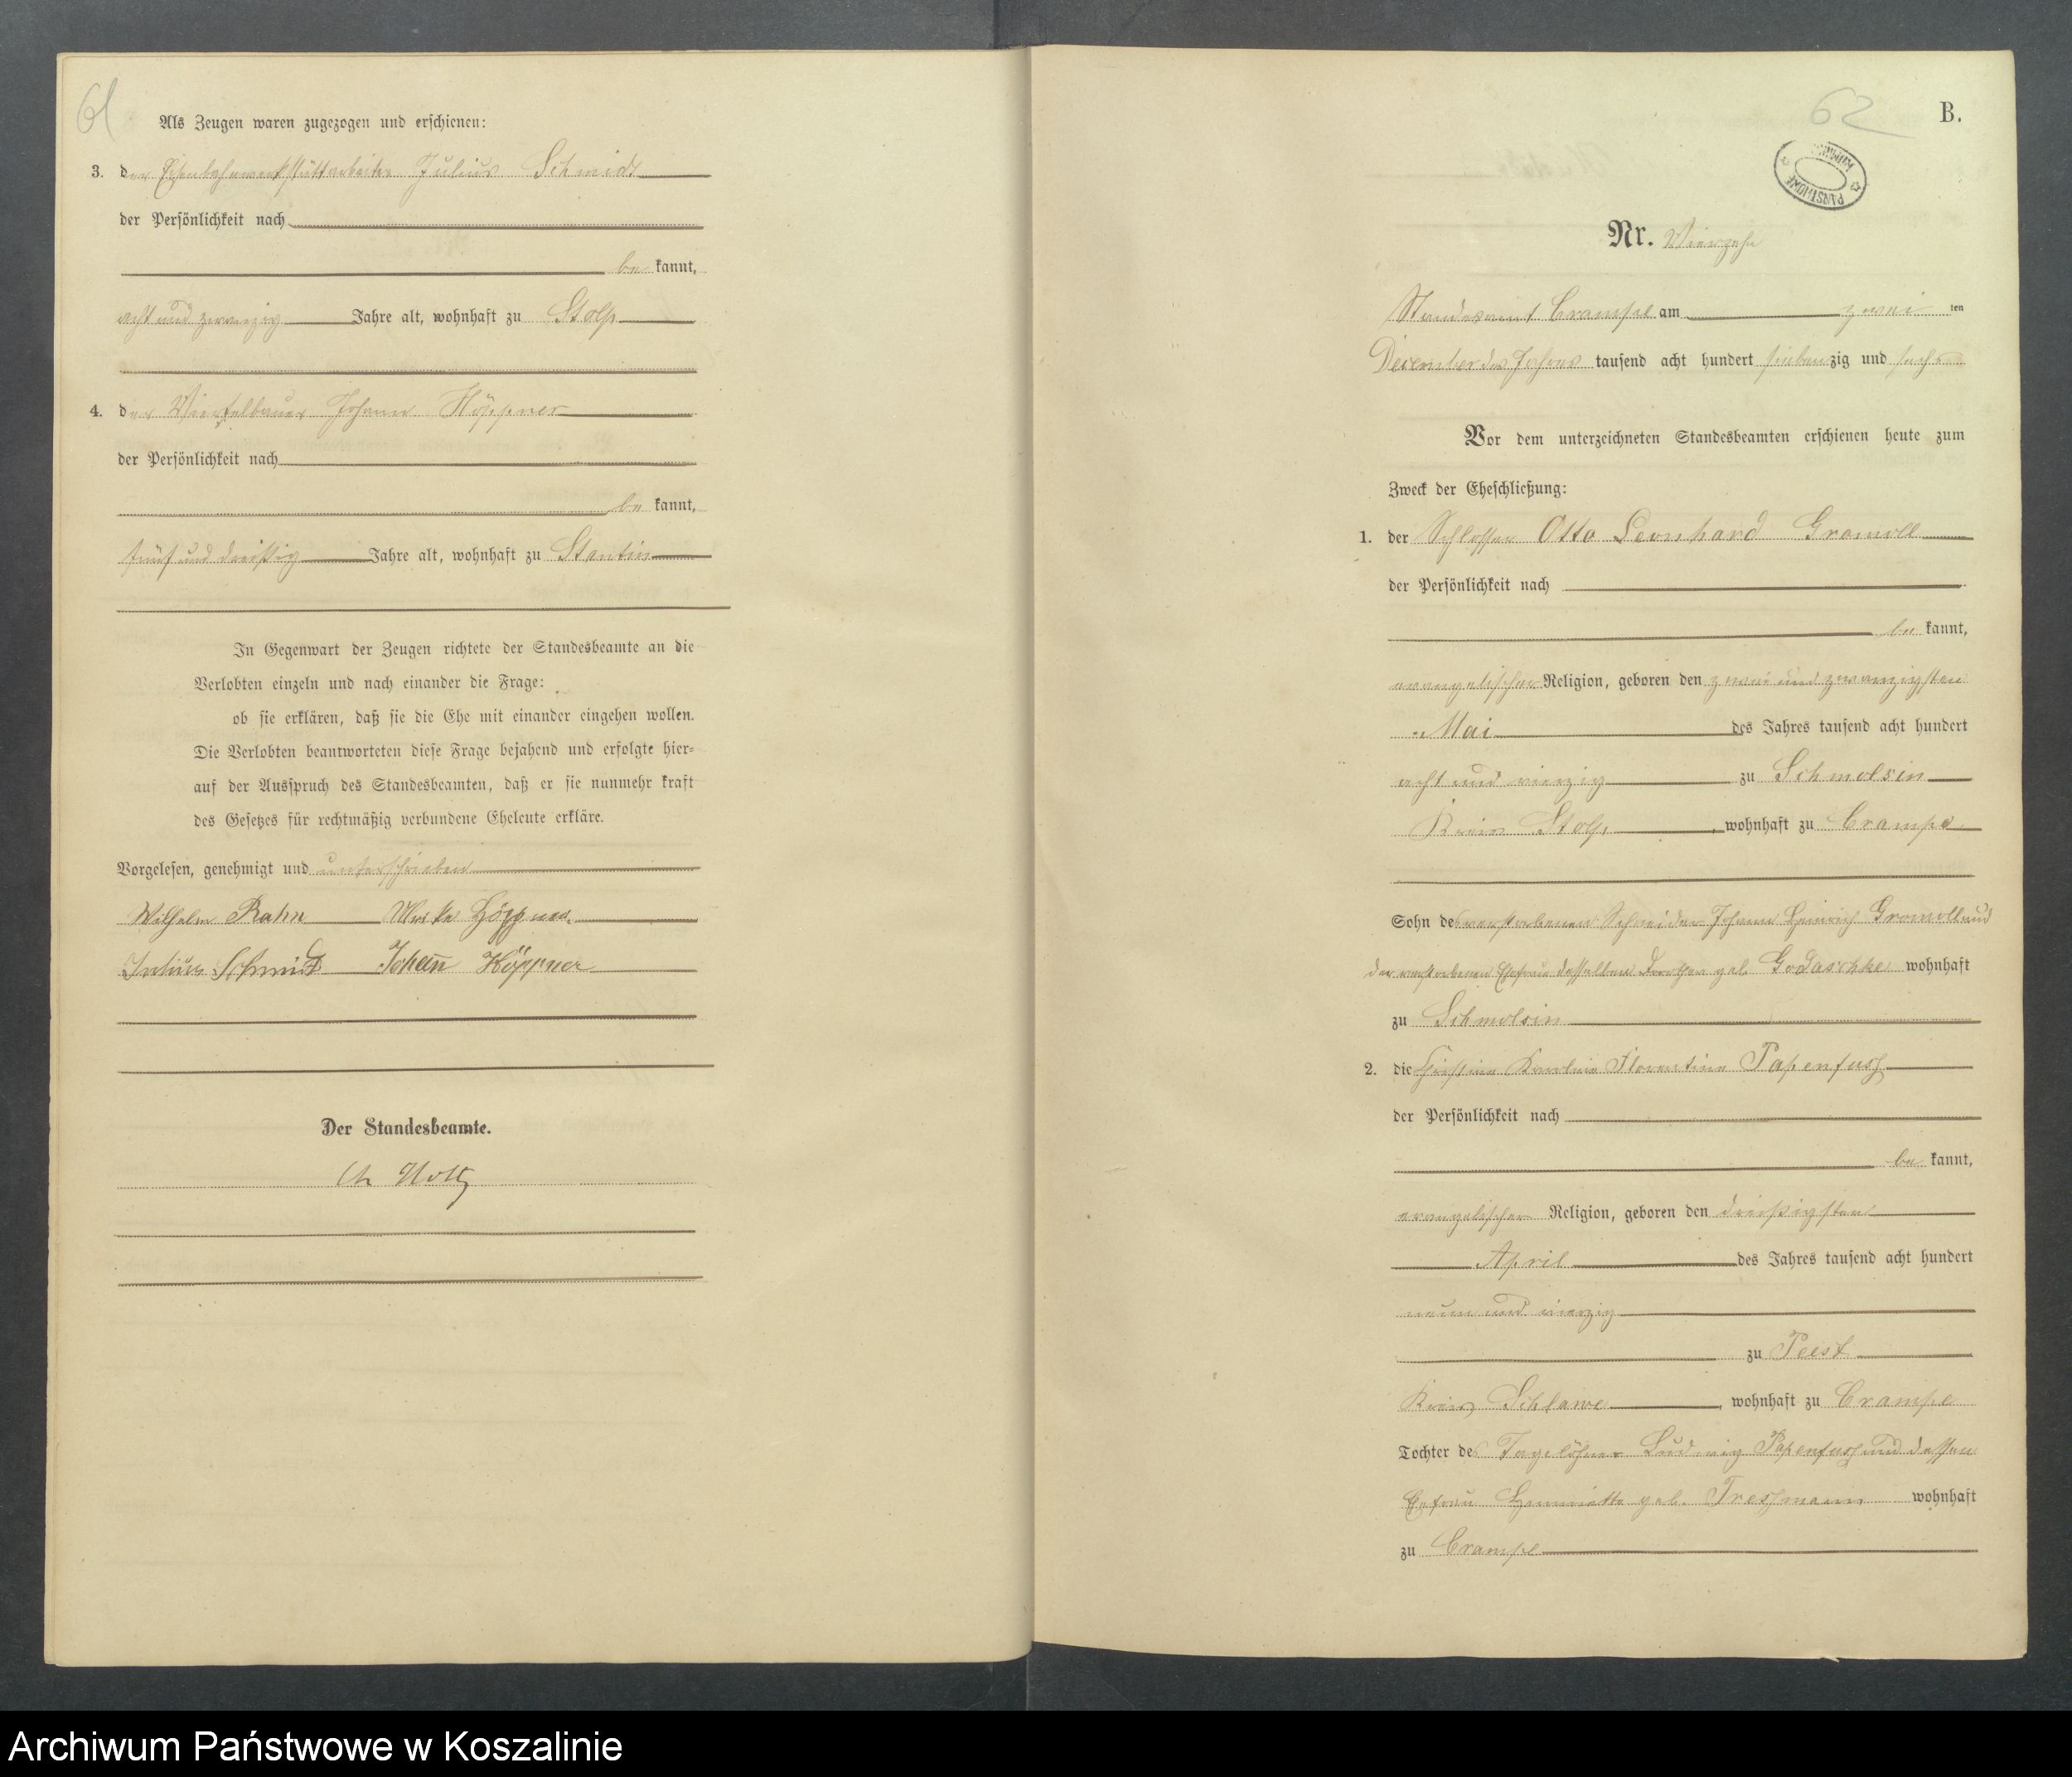 61
Als Zeugen waren zugezogen und erschienen:
3. der Eisenbahnwerkstättarbeiter Julius Schmidt
der Persönlichkeit nach
be kannt,
acht und zwanzig Jahre alt, wohnhaft zu Stolp
4. der Viertelbauer Johann Höppner
der Persönlichkeit nach
be kannt,
fünf und dreißig Jahre alt, wohnhaft zu Stantin
In Gegenwart der Zeugen richtete der Standesbeamte an die
Verlobten einzeln und nach einander die Frage:
ob sie erklären, daß sie die Ehe mit einander eingehen wollen.
Die Verlobten beantworteten diese Frage bejahend und erfolgte hier-
auf der Ausspruch des Standesbeamten, daß er sie nunmehr kraft
des Gesetzes für rechtmäßig verbundene Eheleute erkläre.
Vorgelesen, genehmigt und unterschrieben
Wilhelm Rahn Höppner
Julius Schmidt Johann Höppner
Der Standesbeamte.
Holtz
62 B.
Nr. Vierzehn
Standesamt Crampe am zwei ten
December des Jahres tausend acht hundert siebenzig und sechs
Vor dem unterzeichneten Standesbeamten erschienen heute zum
Zweck der Eheschließung:
1. der Schlosser Otto Leonhard Gromoll
der Persönlichkeit nach
be kannt,
evangelischer Religion, geboren den zwei und zwanzigsten
Mai des Jahres tausend acht hundert
acht und vierzig zu Schmolsin
Kreis Stolp, wohnhaft zu Crampe
Sohn des verstorbenen Schneider Johann Heinrich Gromoll und
der verstorbenen Ehefrau desselben Dorothea geb. Godaschke wohnhaft
zu Schmolsin
2. die Christine Karoline Florentine Papenfuß
der Persönlichkeit nach
be kannt,
evangelischer Religion, geboren den dreißigsten
April des Jahres tausend acht hundert
neun und vierzig
zu Peest
Kreis Schlawe, wohnhaft zu Crampe
Tochter des Tagelöhner Ludwig Papenfuß und dessen
Ehefrau Henriette geb. Treßmann wohnhaft
zu Crampe
Archiwum Państwowe w Koszalinie